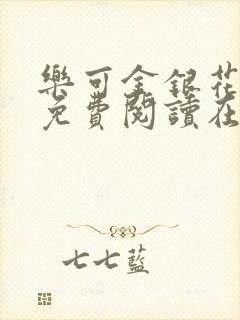 樂可金銀花
免費閱讀在
七七藍